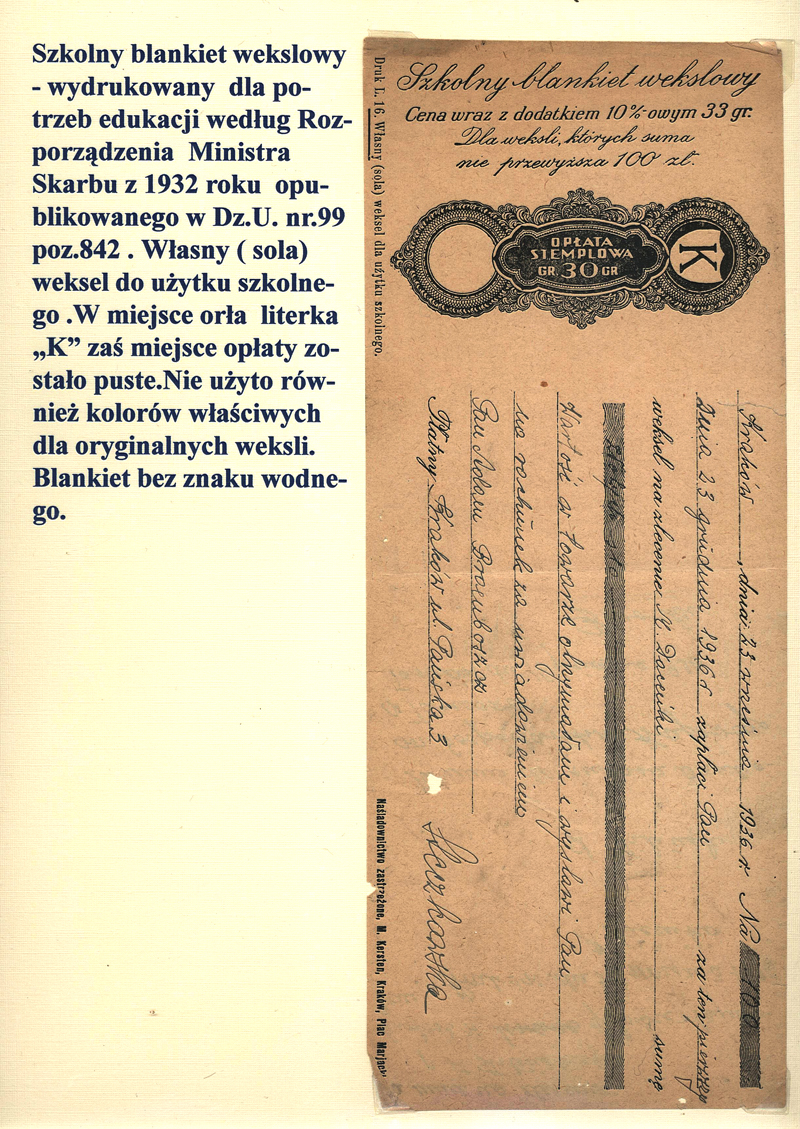 Szkolny blankiet wekslowy
- wydrukowany dla po-
trzeb edukacji według Roz-
porządzenia Ministra
Skarbu z 1932 roku opu-
blikowanego w Dz.U. nr.99
poz.842 . Własny ( sola)
weksel do użytku szkolne-
go .W miejsce orła literka
„K” zaś miejsce opłaty zo-
stało puste.Nie użyto rów-
nież kolorów właściwych
dla oryginalnych weksli.
Blankiet bez znaku wodne-
go.
Szkolny blankiet wekslowy
Cena wraz z dodatkiem 10%-owym 33 gr.
Dla weksli, których suma
nie przewyższa 100 zł.
OPŁATA
STEMPLOWA
GR. 30 GR
K
Druk L. 16. Własny (sola) weksel dla użytku szkolnego.
Kraków, dnia 23 września 1936 r. Na 100
Dnia 23 grudnia 1936 r zapłaci Pan za ten pierwszy
weksel na zlecenie sumę
Wartość w towarze otrzymałam i wystawi Pan
na rachunek za uwiadomieniem
Pan Adam
Płatny Kraków ul. Pańska 3
Naśladownictwo zastrzeżone, M. Kersten, Kraków, Plac Marjacki